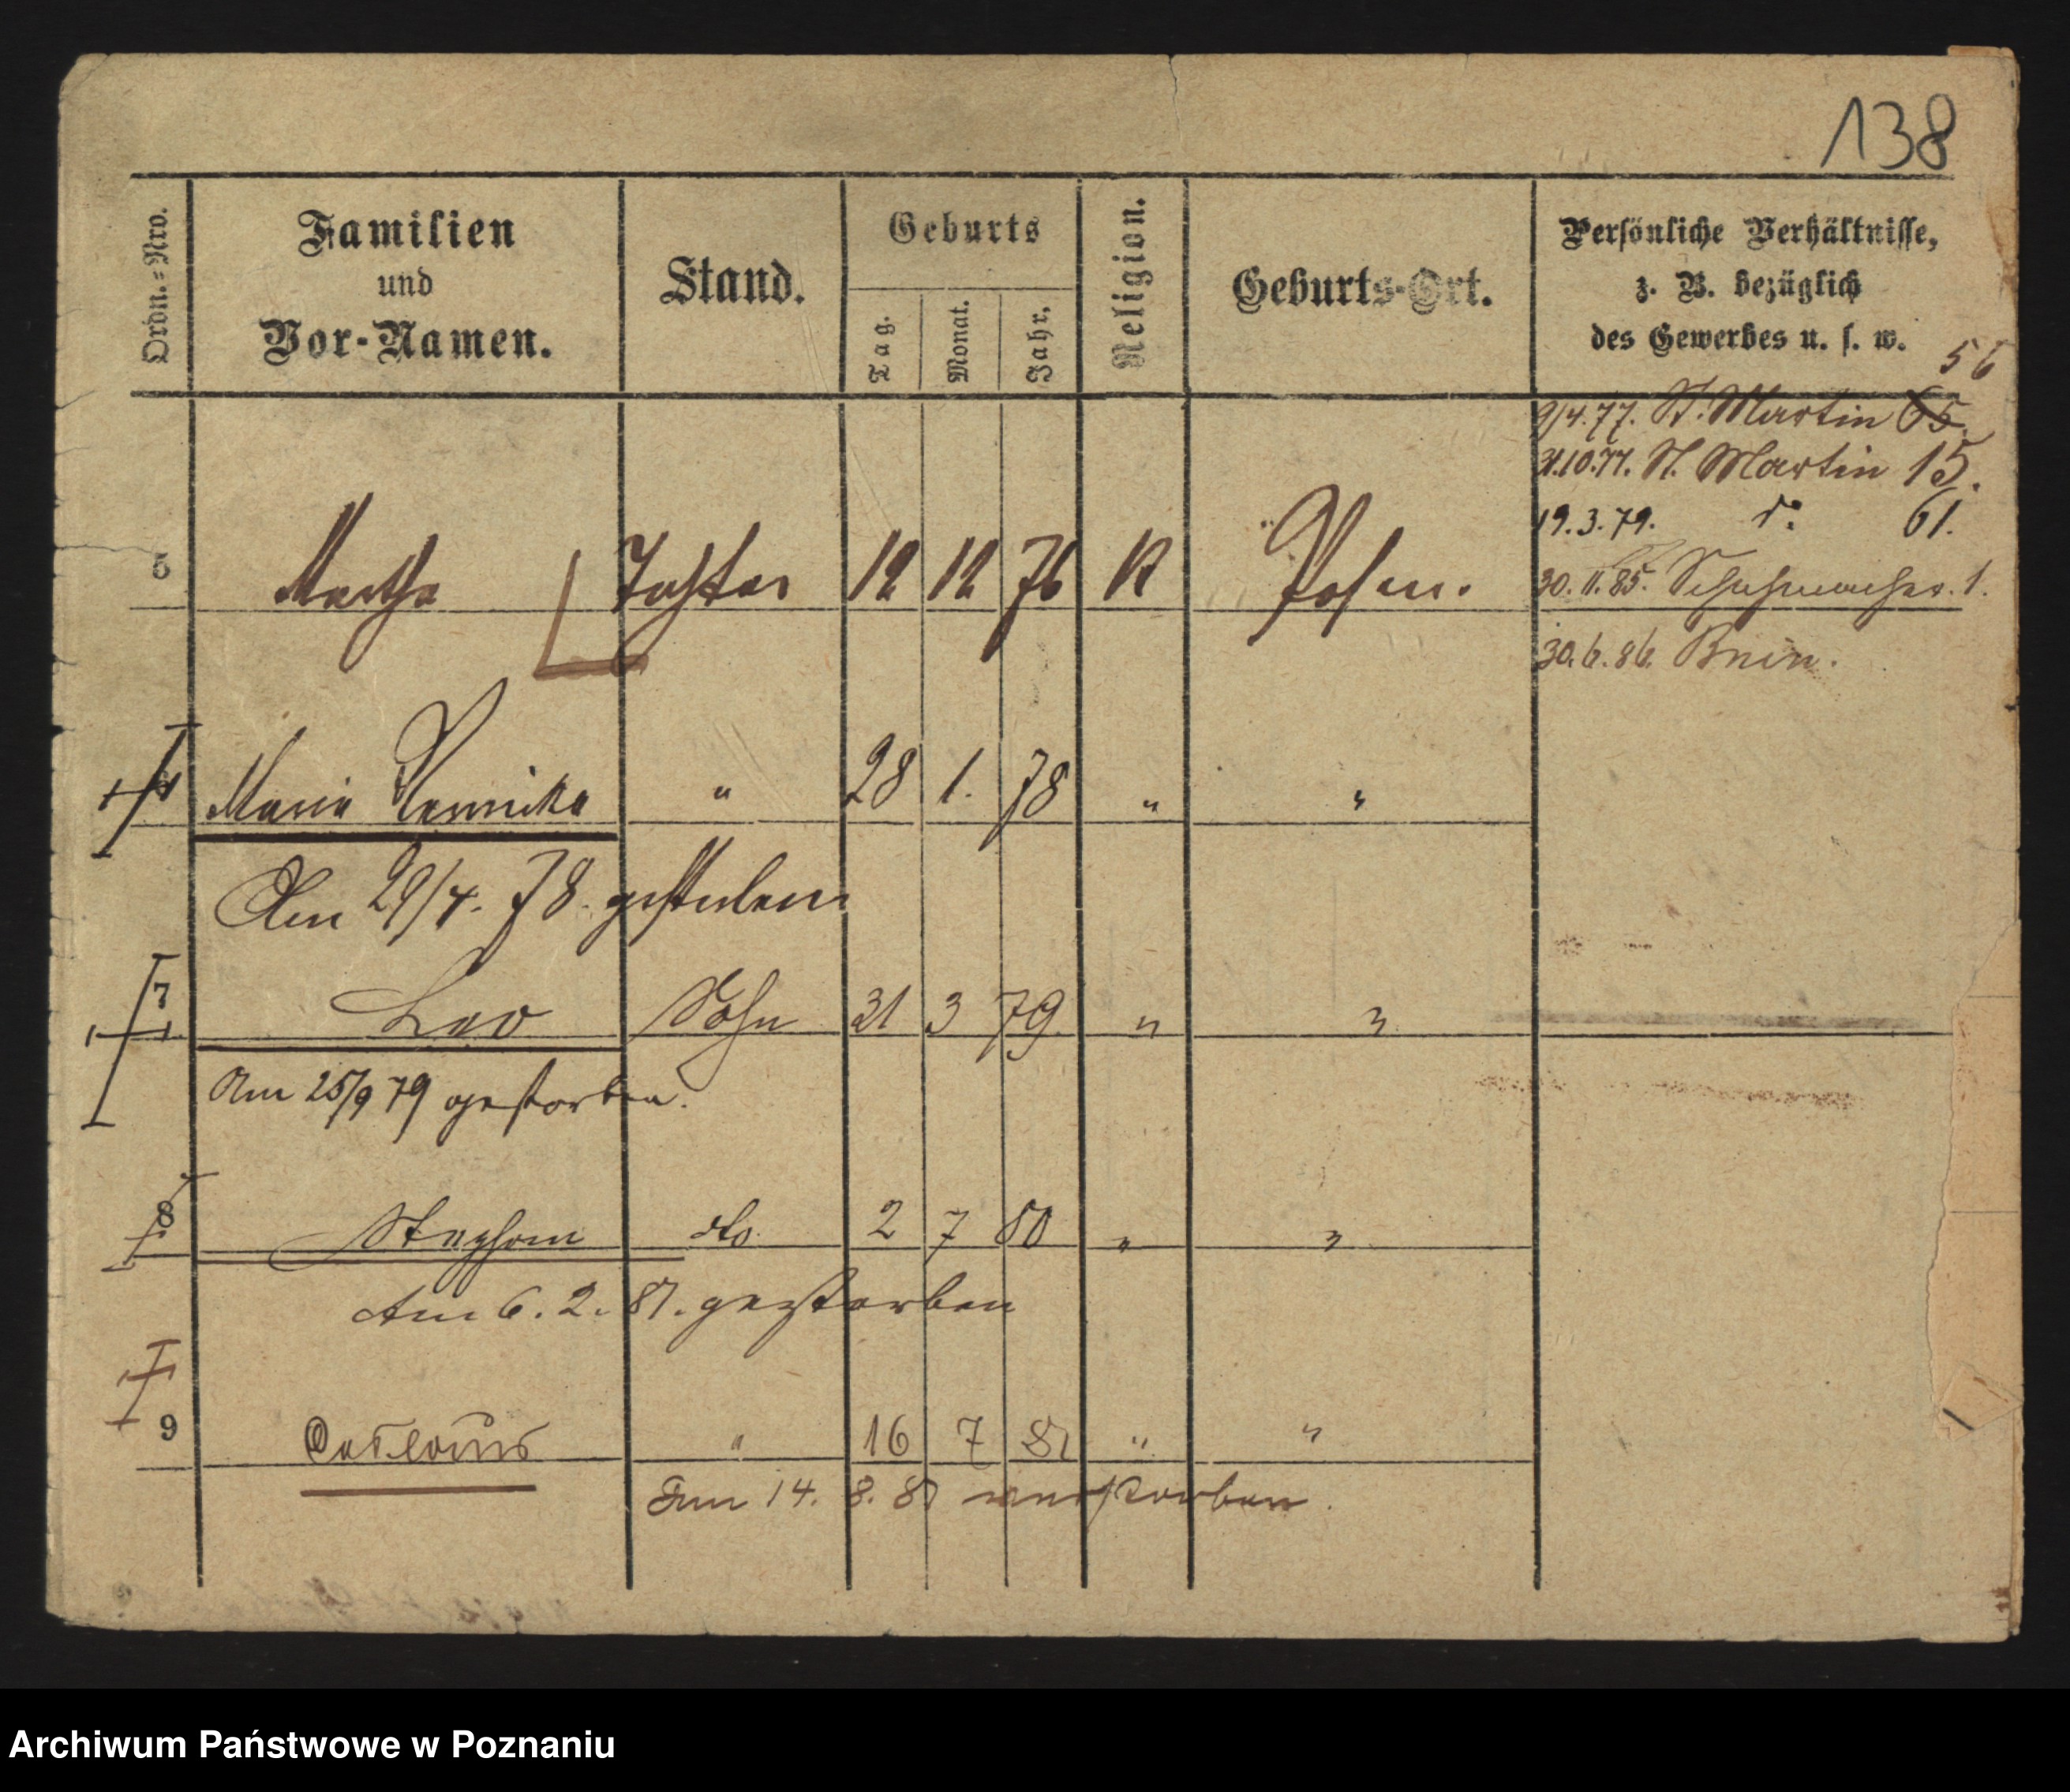 138
Ordn.-Nro.
Familien
und
Vor-Namen.
Stand.
Geburts
Tag.
Monat.
Jahr.
Religion.
Geburts-Ort.
Persönliche Verhältnisse,
z. B. bezüglich
des Gewerbes u. s. w.
56
9/4.77. St. Martin 65.
31.10.77. St. Martin 15.
19.3.79. do 61.
30.11.85. Schuhmacher. 1.
30.6.86. Bnin.
Martha Tochter 12 12 76 K Posen.
Maria " 28 1. 78 " "
Am 29/4. 78. gestorben
7 Leo Sohn 31 3 79. " "
Am 25/9 79 gestorben.
8 Stephan do. 2 7 80 " "
Am 6. 2. 81. gestorben
9 " 16 7 81 " "
Am 14. 8. 81 verstorben.
Archiwum Państwowe w Poznaniu